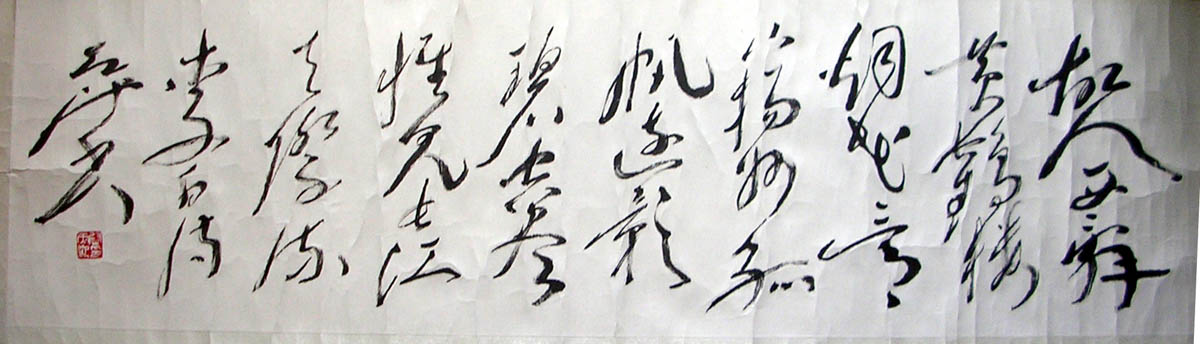 故人西辞
黄鹤楼
烟花三月
下扬州孤
帆远影
碧空尽
惟见长江
天际流
李白诗